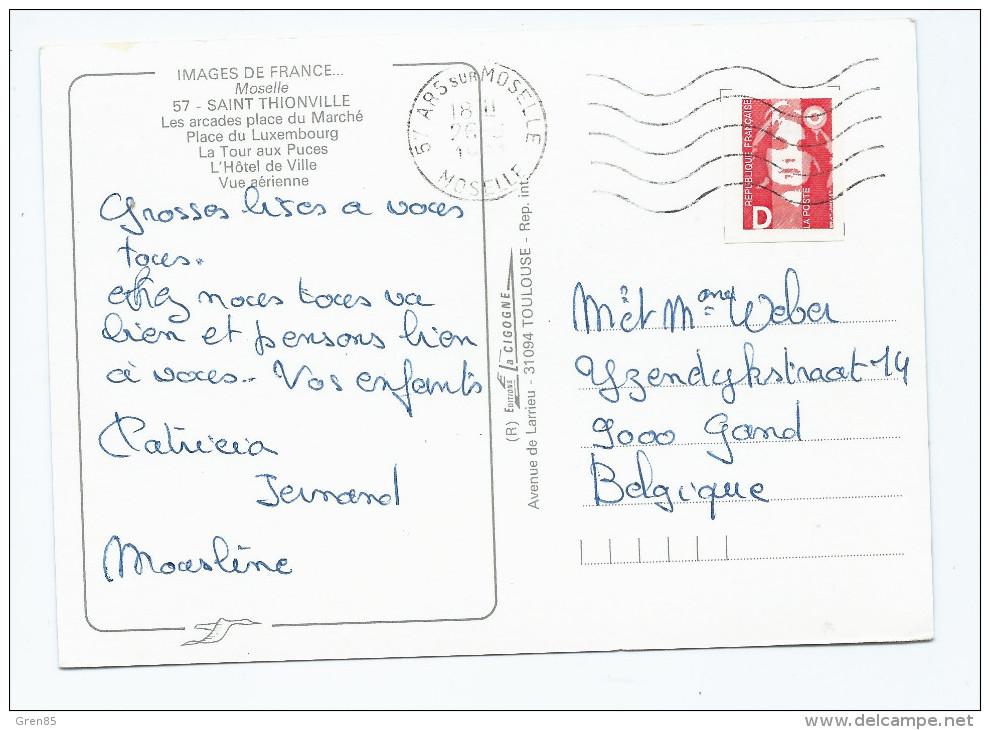 IMAGES DE FRANCE...
Moselle
57 - SAINT THIONVILLE
Les arcades place du Marché
Place du Luxembourg
La Tour aux Puces
L'Hôtel de Ville
Vue aérienne
Grosses bises a vous
tous.
chez nous tous va
bien et pensons bien
à vous.. Vos enfants
Patricia
Fernand
Mousline
57 ARS SUR MOSELLE
18 H
26
MOSELLE
(R) EDITIONS La CIGOGNE
Avenue de Larrieu - 31094 TOULOUSE - Rep. int.
REPUBLIQUE FRANÇAISE
D
LA POSTE
Mr et Mme Weber
Yzendykstraat 14
9000 Gand
Belgique
Gren85
www.delcampe.net